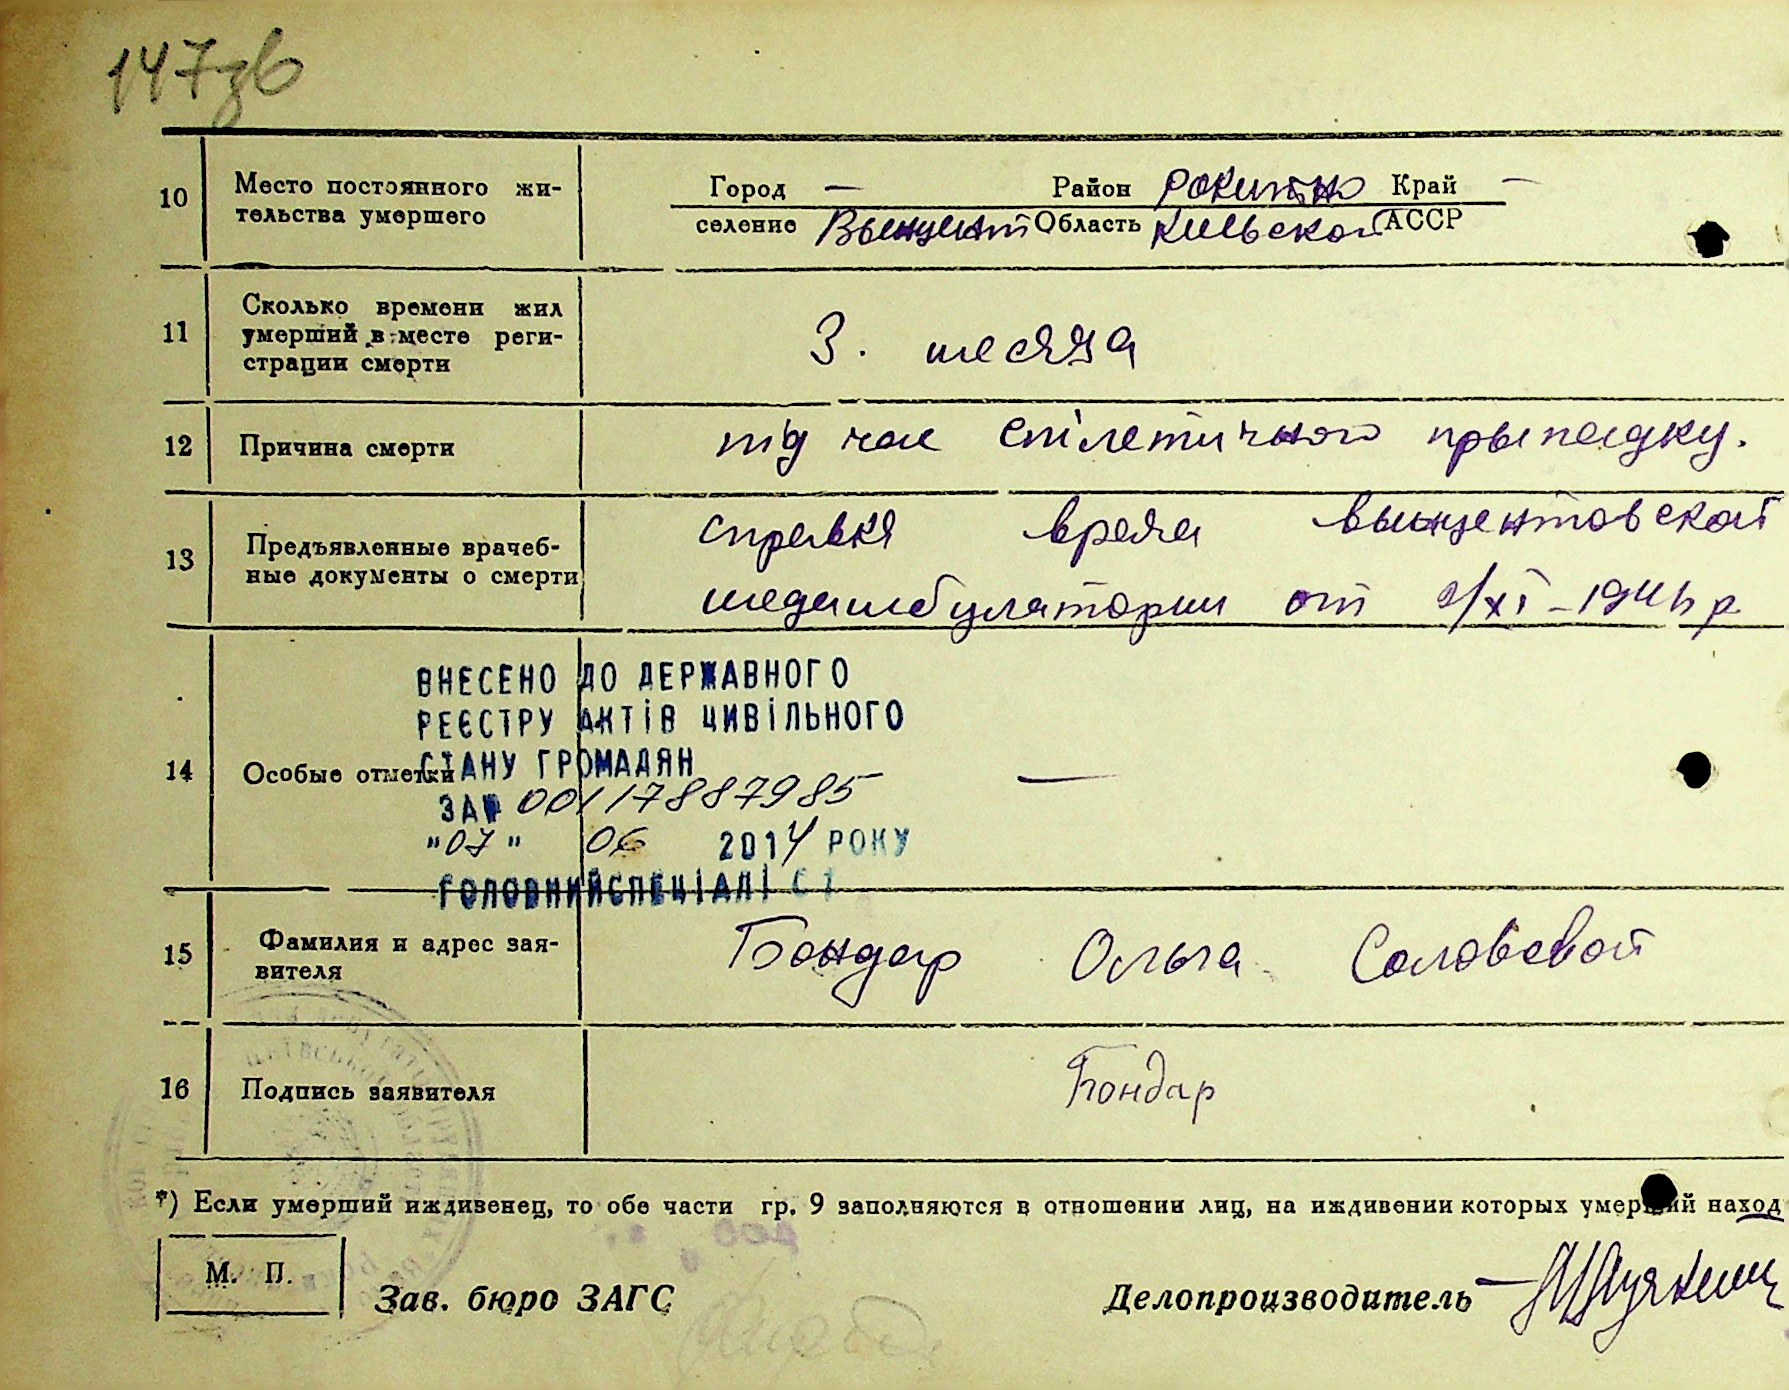 147зв
10 Место постоянного жи-
тельства умершего
Город — Район Рокитно Край —
селение Вынцент Область Киевской АССР
11 Сколько времени жил
умерший в месте реги-
страции смерти
3. месяца
12 Причина смерти
під час епілетичного прыпадку.
13 Предъявленные врачеб-
ные документы о смерти
справка врача вынцентовской
медамбулатории от
14 Особые отметки —
ВНЕСЕНО ДО ДЕРЖАВНОГО
РЕЄСТРУ АКТІВ ЦИВІЛЬНОГО
СТАНУ ГРОМАДЯН
ЗА № 00117887985
"07" 06 2014 РОКУ
ГОЛОВНИЙ СПЕЦІАЛІСТ
15 Фамилия и адрес зая-
вителя
Бондар Ольга Соловевой
16 Подпись заявителя
Бондар
*) Если умерший иждивенец, то обе части гр. 9 заполняются в отношении лиц, на иждивении которых умерший наход
М. П.
Зав. бюро ЗАГС
Делопроизводитель